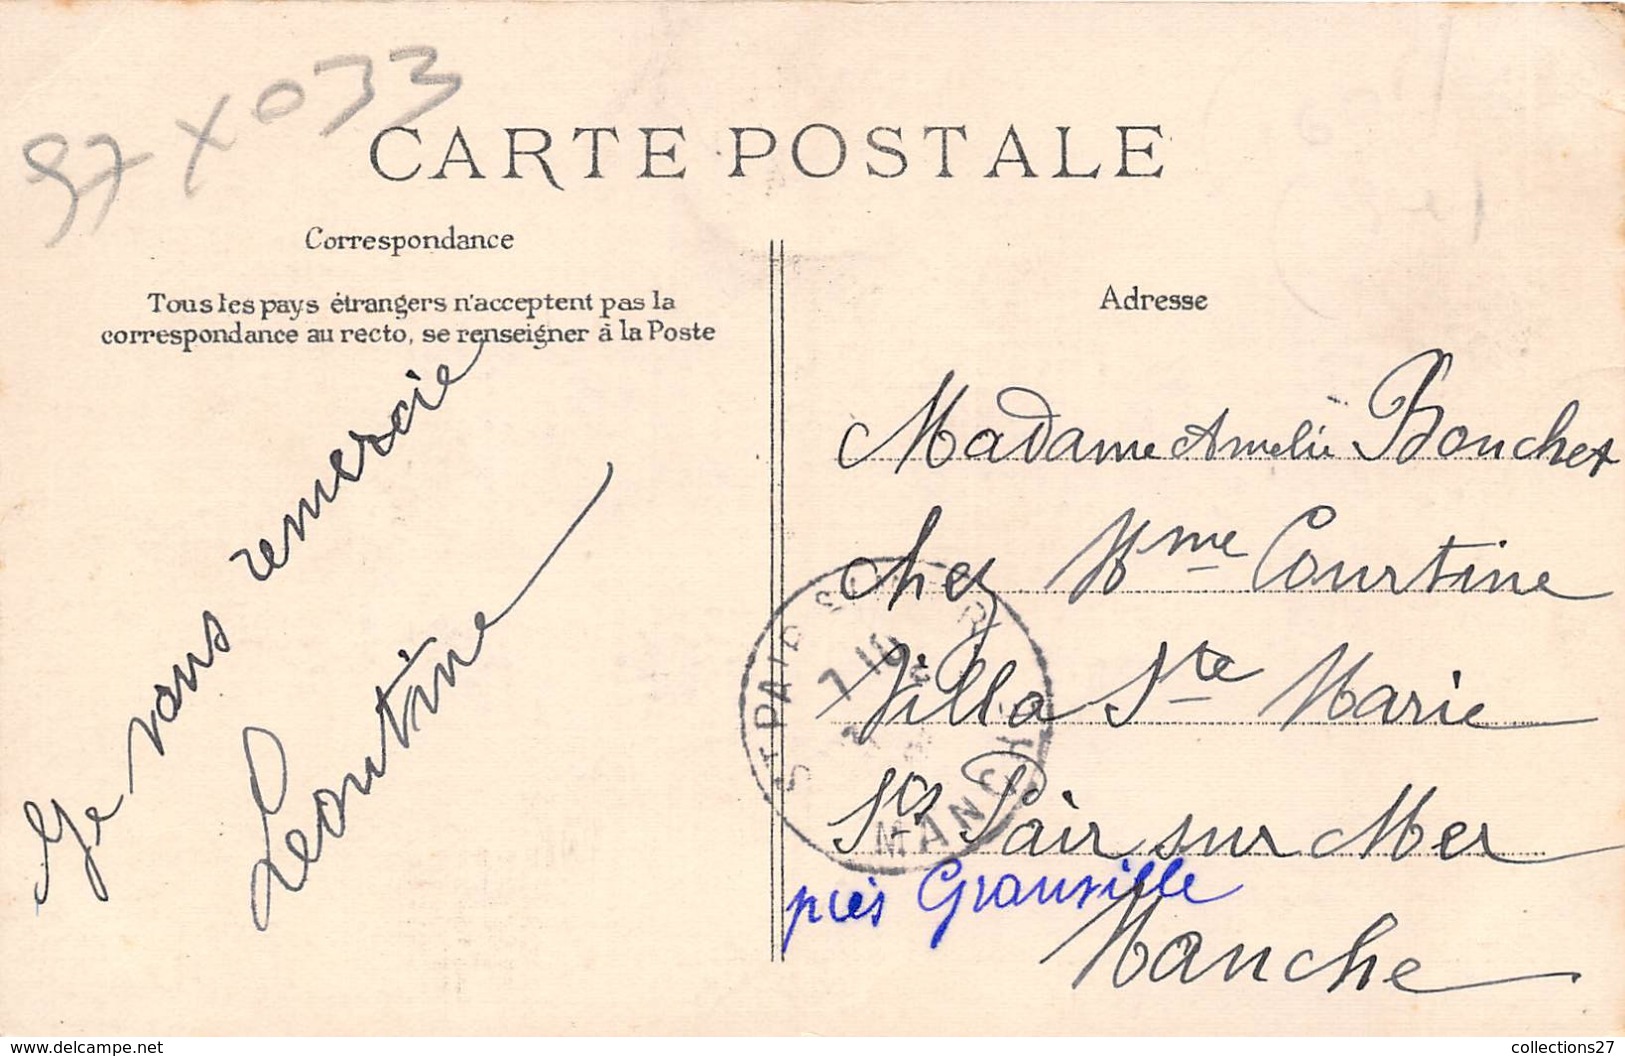 97 x 033
CARTE POSTALE
Correspondance
Tous les pays étrangers n'acceptent pas la
correspondance au recto, se renseigner à la Poste
Je vous remercie
Leontine
Adresse
Madame Amelie Bouchet
chez Mme Courtine
Villa Ste Marie
St Pair sur Mer
près Granville
Manche
ST PAIR SUR MER
7-10
MANCHE
https://www.delcampe.net
collections27